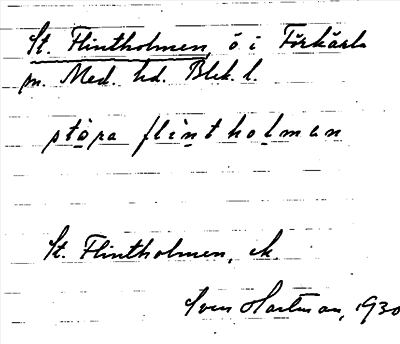 St. Flintholmen, ö i Förkärla
m. Med. hd. Blek. l.
stòra flintholman
St. Flintholmen, ek.
Sven Hartman, 1930